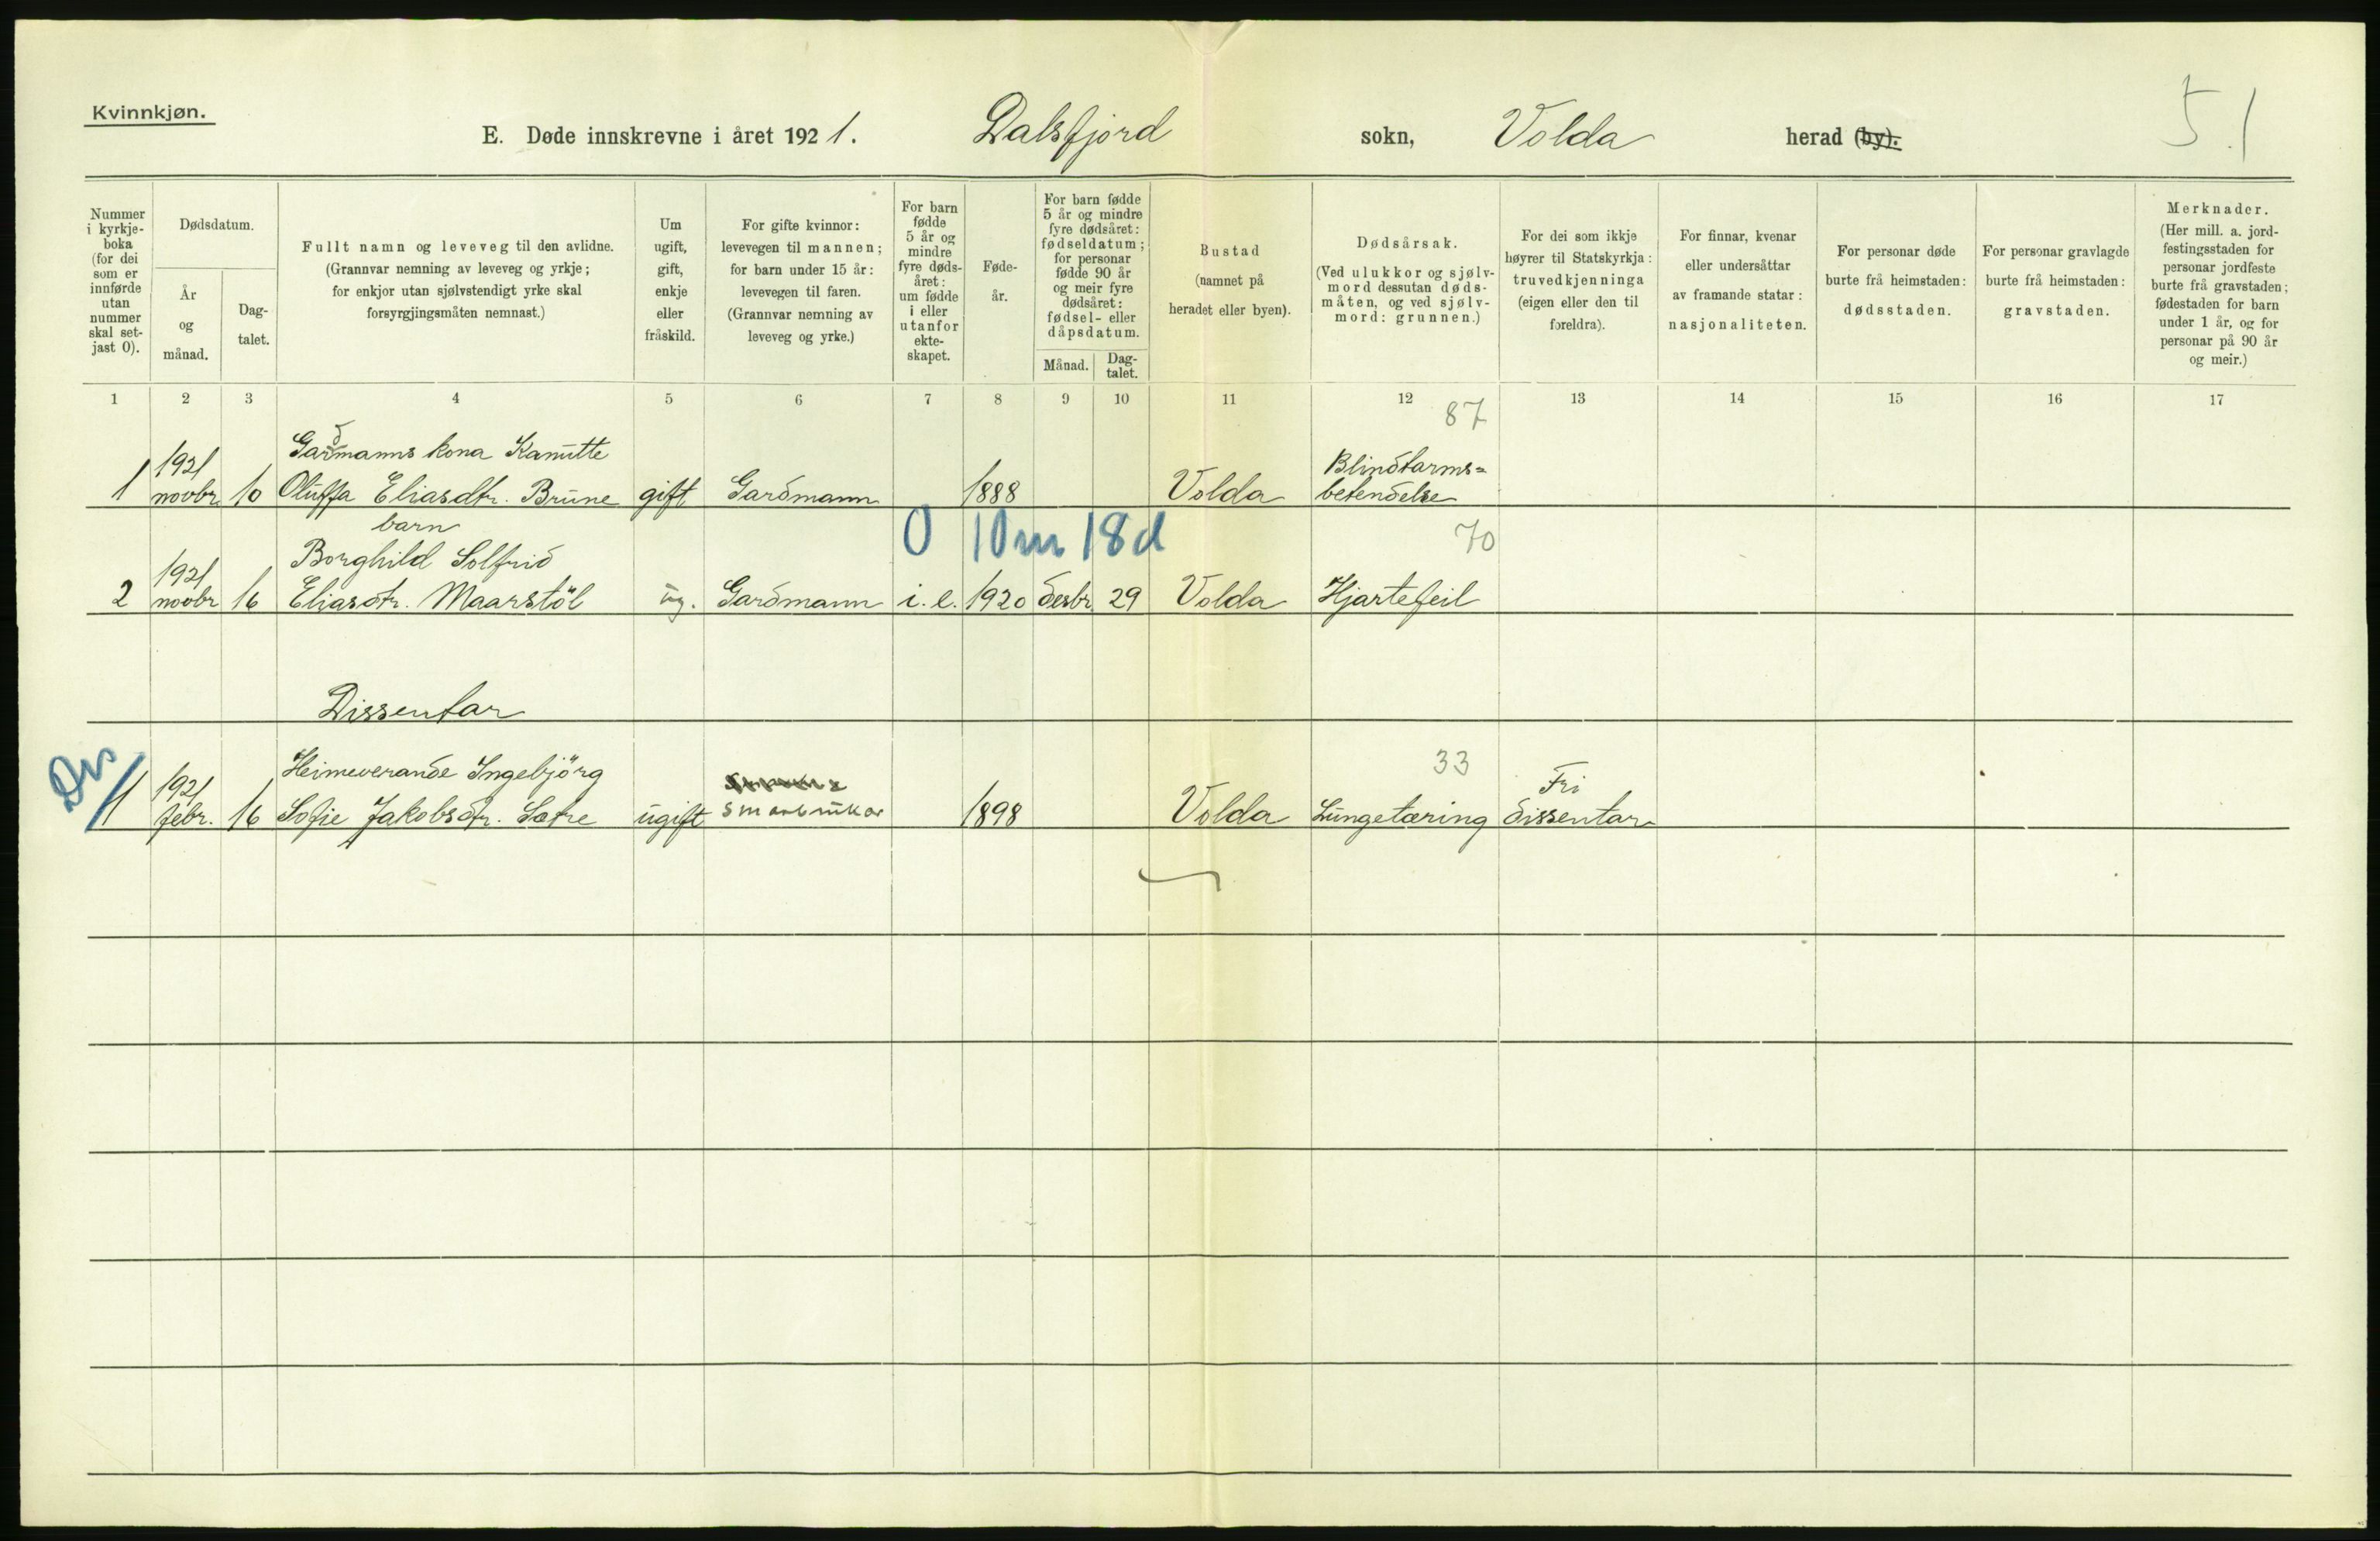 Kvinnkjøn.
E. Døde innskrevne i året 1921. Dalsfjord sokn, Volda herad (by).
5.1
Nummer i kyrkje-boka (for dei som er innførde utan nummer skal set-jast 0).
Dødsdatum.
År og månad.
Dag-talet.
Fullt namn og leveveg til den avlidne.
(Grannvar nemning av leveveg og yrkje;
for enkjor utan sjølvstendigt yrke skal
forsyrgjingsmåten nemnast.)
Um ugift, gift, enkje eller fråskild.
For gifte kvinnor:
levevegen til mannen;
for barn under 15 år:
levevegen til faren.
(Grannvar nemning av
leveveg og yrke.)
For barn fødde 5 år og mindre fyre døds-året: um fødde i eller utanfor ekte-skapet.
Føde-år.
For barn fødde
5 år og mindre
fyre dødsåret:
fødseldatum;
for personar
fødde 90 år
og meir fyre
dødsåret:
fødsel- eller
dåpsdatum.
Månad.
Dag-talet.
Bustad
(namnet på
heradet eller byen).
Dødsårsak.
(Ved ulukkor og sjølv-
mord dessutan døds-
måten, og ved sjølv-
mord: grunnen.)
For dei som ikkje
høyrer til Statskyrkja:
truvedkjenninga
(eigen eller den til
foreldra).
For finnar, kvenar
eller undersåttar
av framande statar:
nasjonaliteten.
For personar døde
burte frå heimstaden:
dødsstaden.
For personar gravlagde
burte frå heimstaden:
gravstaden.
Merknader.
(Her mill. a. jord-
festingsstaden for
personar jordfeste
burte frå gravstaden;
fødestaden for barn
under 1 år, og for
personar på 90 år
og meir.)
1 2 3 4 5 6 7 8 9 10 11 12 13 14 15 16 17
87
1921 Gardmanns kona Kanutte Blindtarms-
1 novbr. 10 Oluffa Eliasdtr. Brune gift Gardmann 1888 Volda betendelse
barn 0 10 m 18 d 70
1921 Borghild Solfrid
2 novbr 16 Eliasdtr. Maarstöl ug. Gardmann i. e. 1920 desbr. 29 Volda Hjartefeil
Dissentar
Dis 33
1921 Heimeverande Ingebjörg Fri
1 febr. 16 Sofie Jakobsdtr. Sætre ugift Smaabrukar 1898 Volda Lungetæring dissentar